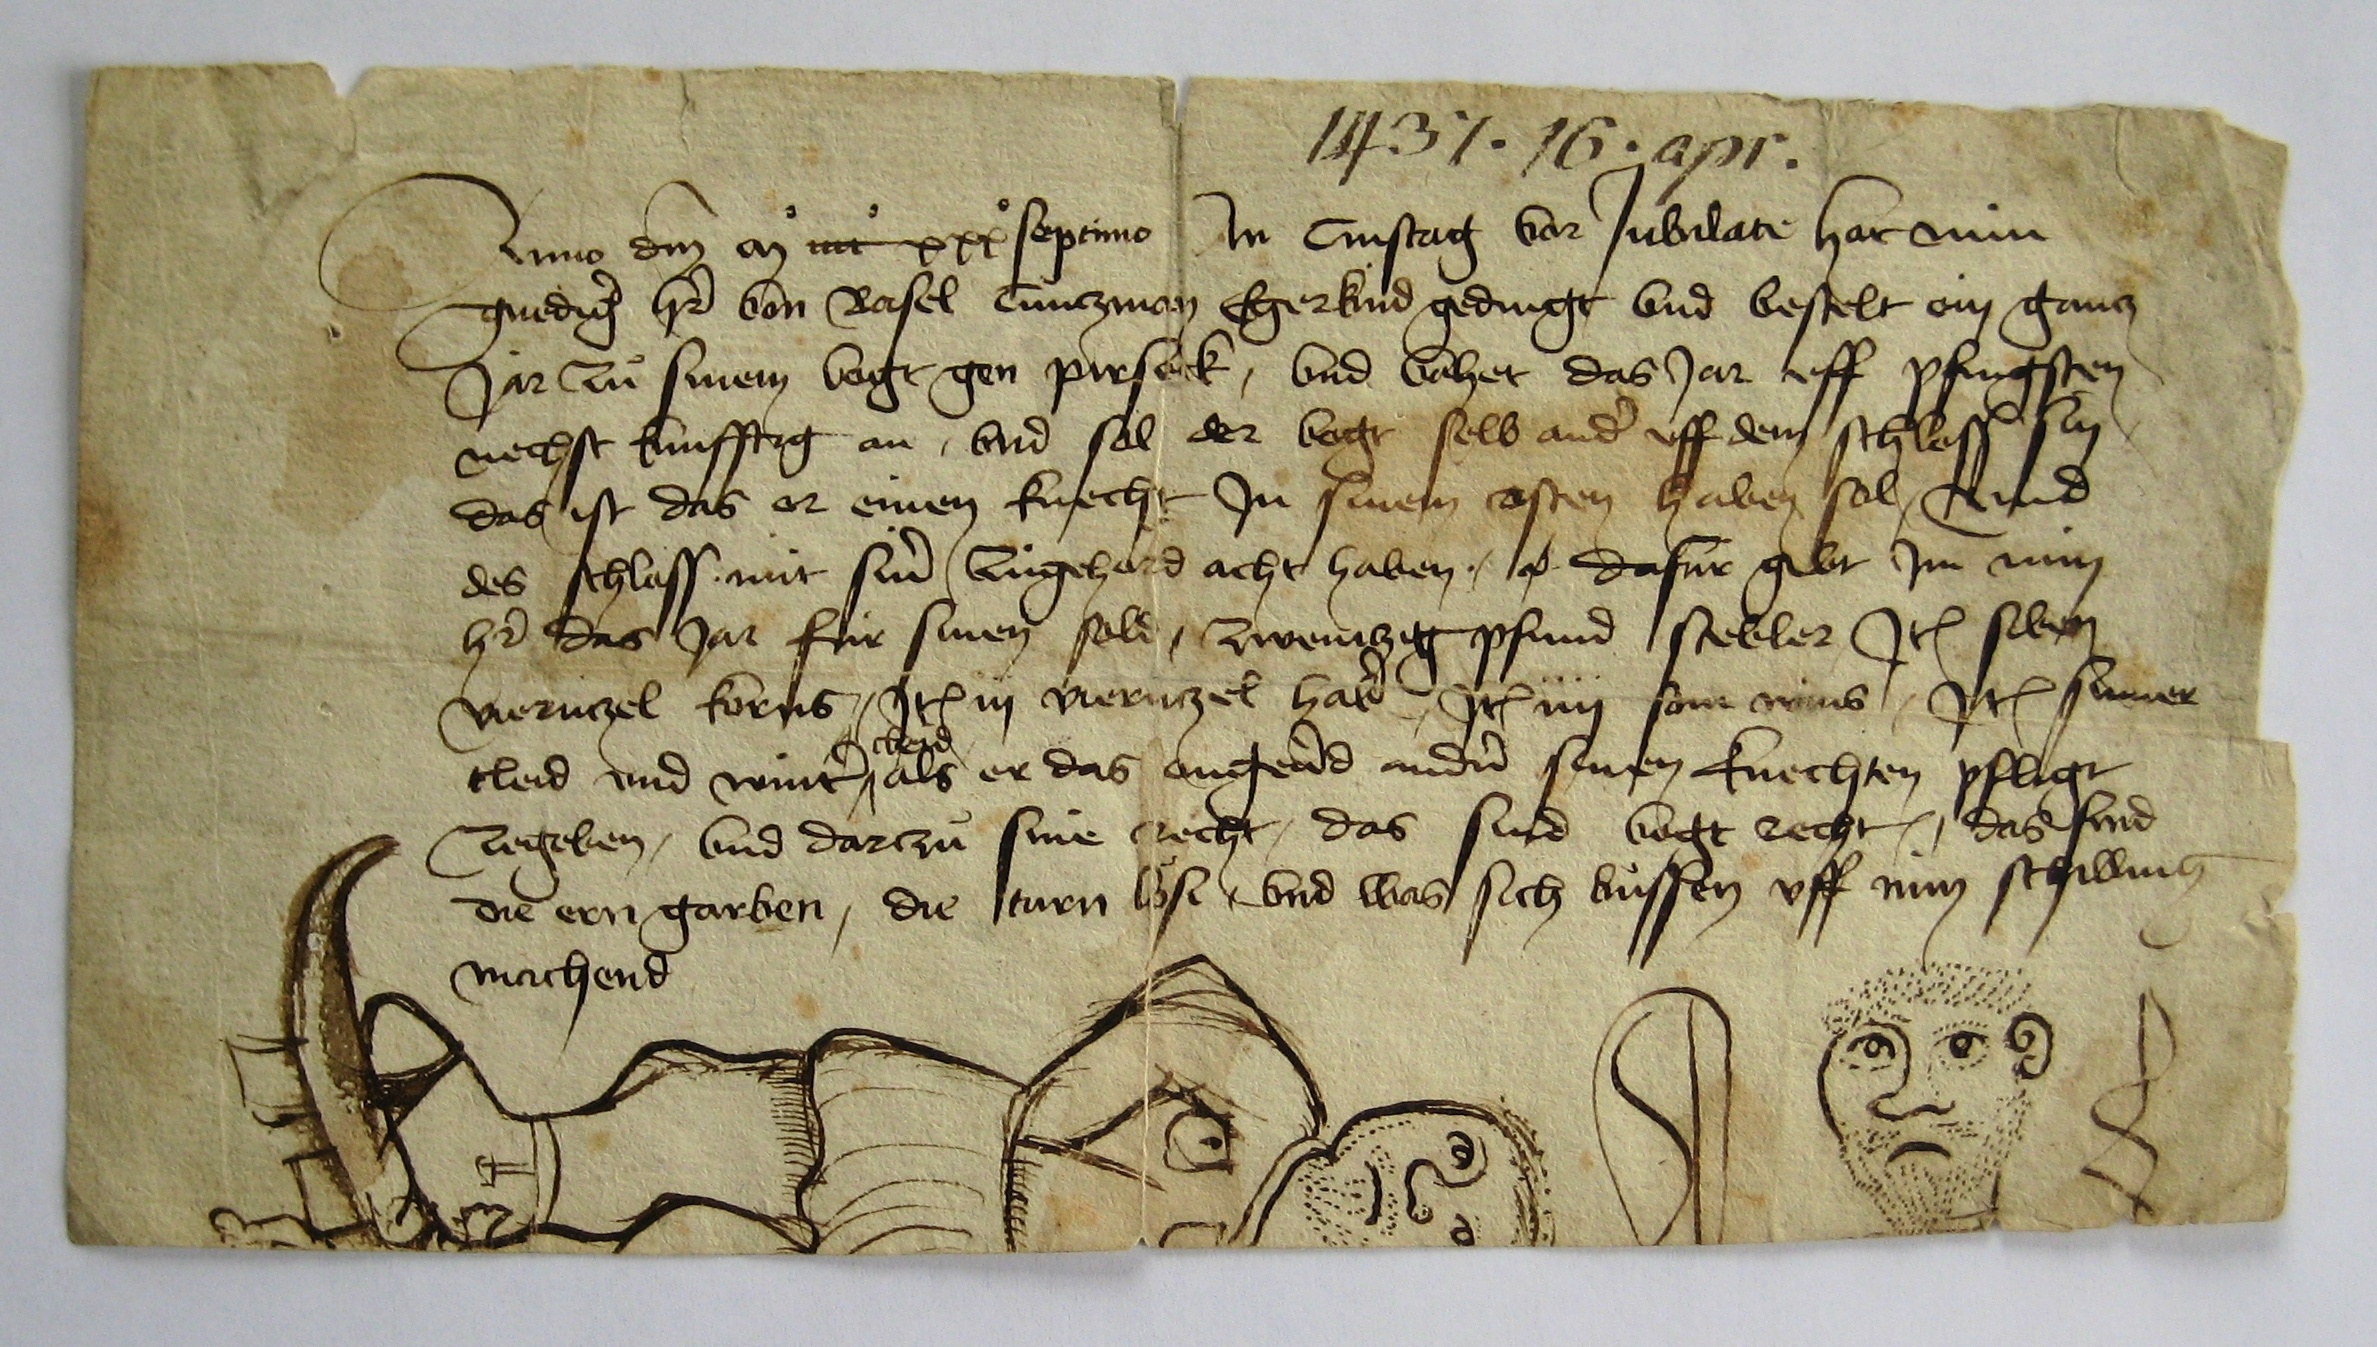 1437. 16. apr.
Anno dm m° cccc° xxx° septimo In Cinstag vor Jubilate hat min
gnedig hr von Basel Cunczman Egerkind gedingt vnd bestelt ein gantz
Jar zů sinem vogt gen pirseck, vnd vahet das Jar uff pfingsten
nechst kunfftig an, vnd sol der vogt selb ander uff dem schloss sin
das ist das er einen knecht In sinem costen haben sol, vnd
des schloss mit siner zůgehord acht haben, dafur gibt Im min
hr das Jar fúr sinen sold, zwentzig pfund stebler Itē siben
viernzel korns, Itē iij viernzel habern, Itē iiij som wins, Itē sumer
cleid
cleid und winter als er das andern sinen knechten pfligt
zegeben, vnd darzů sine recht, das sind vogt recht, das sind
die ern garben, die turn lősi vnd was sich bůssen vff nún schilling
machend